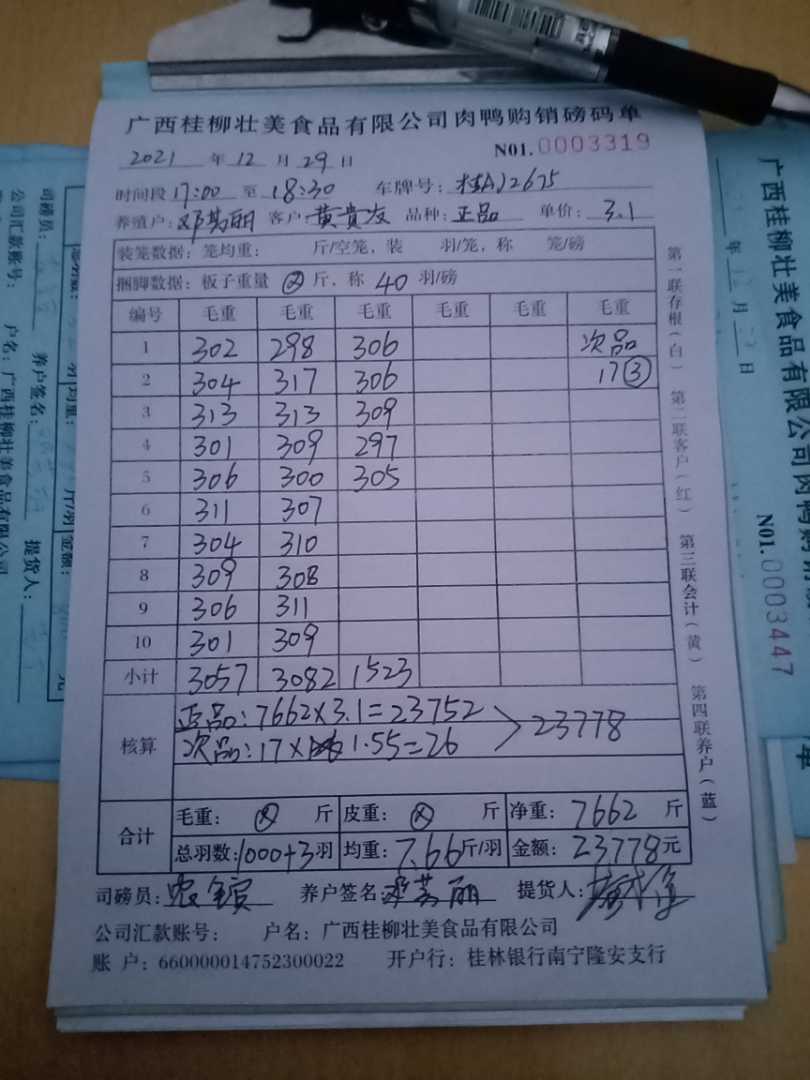 广西桂柳壮美食品有限公司肉鸭购销磅码单
2021 年 12 月 29 日 N01.0003319
时间段 17:00 至 18:30 车牌号: 桂AJ2675
养殖户: 邓芳丽 客户: 黄贵友 品种: 正品 单价: 3.1
装笼数据: 笼均重: 斤/空笼, 装 羽/笼, 称 笼/磅
捆脚数据: 板子重量 ⊗ 斤, 称 40 羽/磅
编号 毛重 毛重 毛重 毛重 毛重 毛重
1 302 298 306 次品
2 304 317 306 17③
3 313 313 309
4 301 309 297
5 306 300 305
6 311 307
7 304 310
8 309 308
9 306 311
10 301 309
小计 3057 3082 1523
核算 正品: 7662×3.1=23752
次品: 17× 1.55=26
23778
合计 毛重: ⊗ 斤 皮重: ⊗ 斤 净重: 7662 斤
总羽数: 1000+3 羽 均重: 7.66 斤/羽 金额: 23778 元
司磅员: 养户签名: 邓芳丽 提货人:
公司汇款账号: 户名: 广西桂柳壮美食品有限公司
账 户: 660000014752300022 开户行: 桂林银行南宁隆安支行
第一联存根(白) 第二联客户(红) 第三联会计(黄) 第四联养户(蓝)
广西桂柳壮美食品有限公司肉鸭购销
年 12 月 日
N01.0003447
司磅员: 养户签名: 提货人:
公司汇款账号: 户名: 广西桂柳壮美食品有限公司